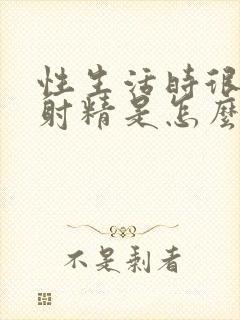 性生活时很
射精是怎麼
不是剩者